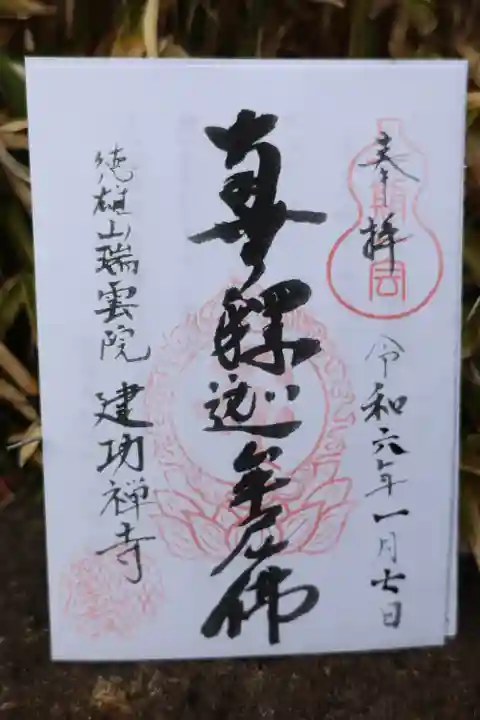 奉拜
令和六年一月七日
南無釋迦牟尼佛
徳雄山瑞雲院 建功禅寺